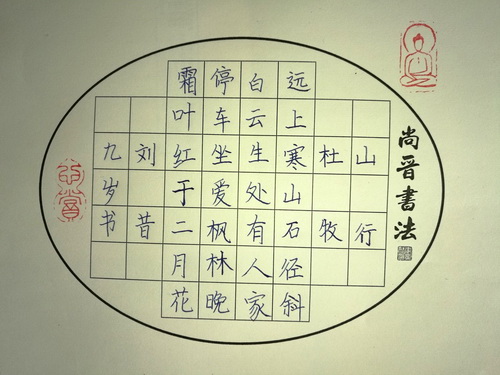 尚晋書法
山行
杜牧
远上寒山石径斜
白云生处有人家
停车坐爱枫林晚
霜叶红于二月花
刘昔
九岁书